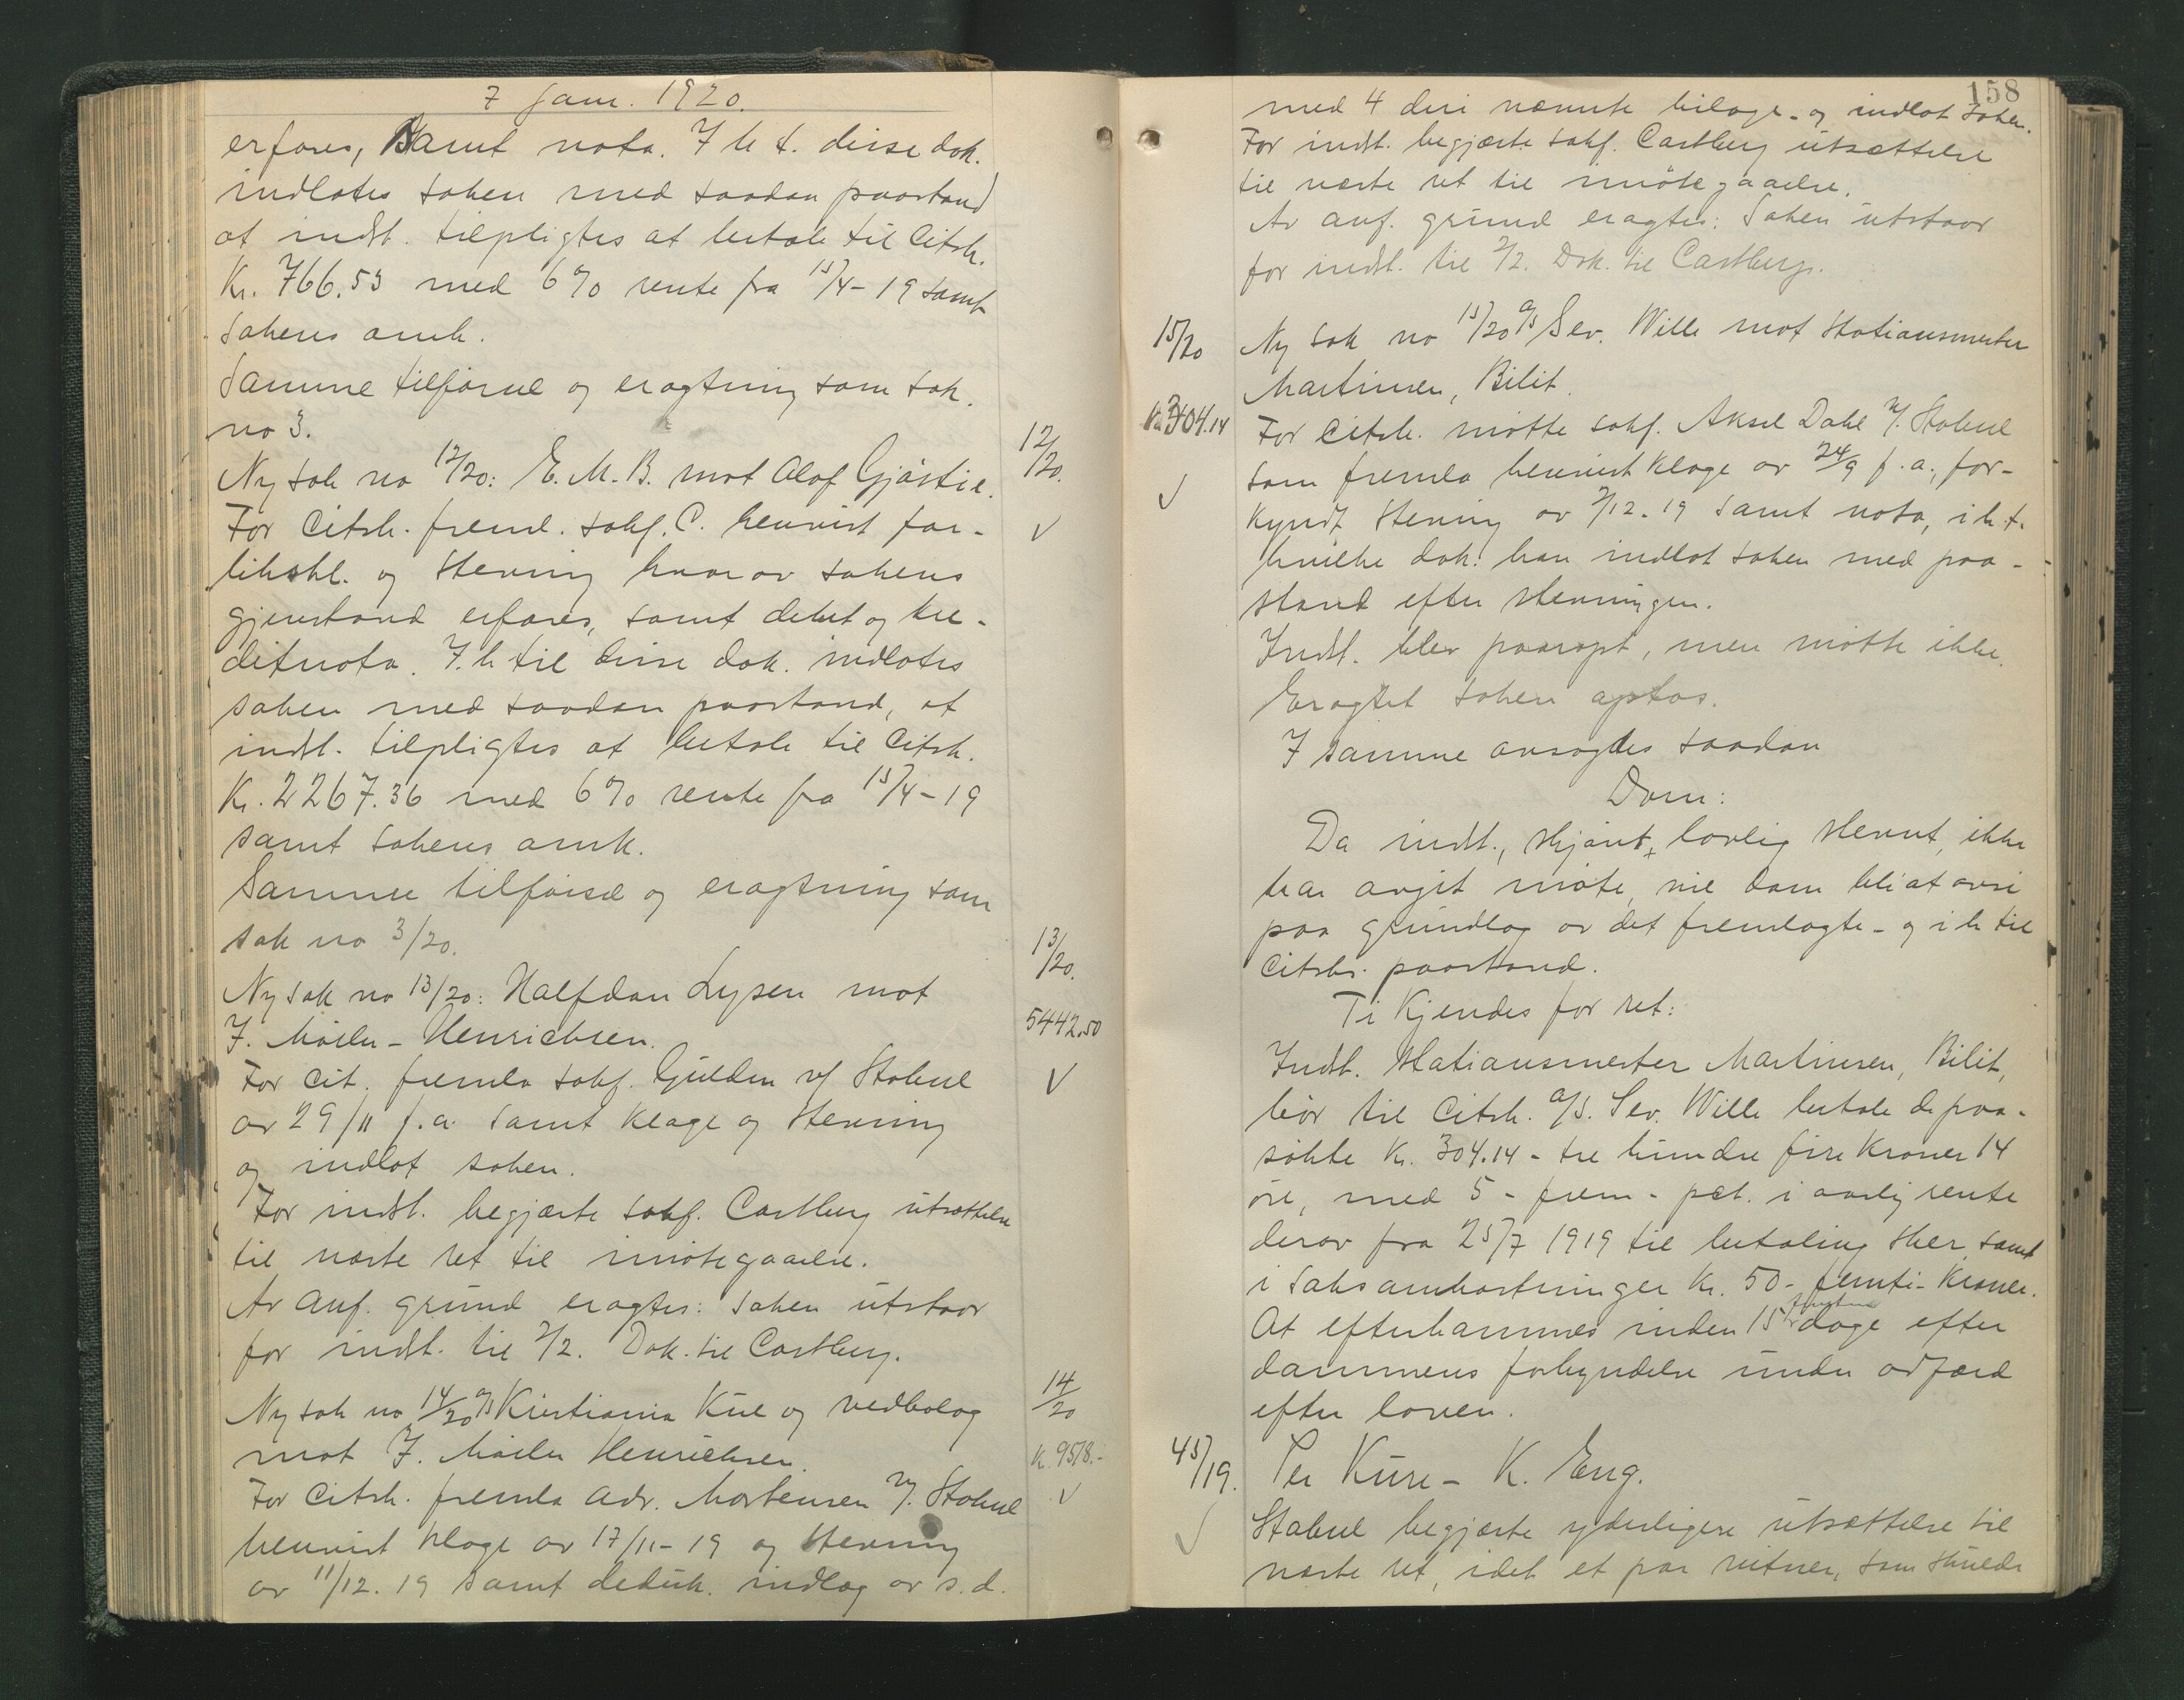 7 Jan. 1920.
erfares, samt nota. I h. t. disse dok.
indlates saken med saadan paastand
at indst. tilpligtes at betale til Citsk.
Kr. 766.53 med 6% rente fra 15/4-19 samt
sakens omk.
Samme tilførsel og eragtning som sak.
no 3.
12/20.
Ny sak no 12/20: E. M. B. mot Olaf Gjøstie.
For Citsk. freml. sakf. C. henvist for-
likskl. og stevning hvorav sakens
gjenstand erfares, samt debet og kre-
ditnota. I. h. til disse dok. indlates
saken med saadan paastand, at
indst. tilpligtes at betale til Citsk.
Kr. 2267.36 med 6% rente fra 15/4-19
samt sakens omk.
Samme tilførsel og eragtning som
sak no 3/20.
13/20.
Ny sak no 13/20: Halfdan Lysen mot
J. Møller-Henrichsen.
5442.50
For cit. fremla sakf. Gulden v/ Stabel
av 29/11 f.a. samt klage og stevning
og indlot saken.
For indst. begjærte sakf. Castberg utsættelse
til næste ret til imøtegaaelse.
Av anf. grund eragtes: Saken utstaar
for indst. til 2/2. Dok. til Castberg.
14/20
Ny sak no 14/20 A/S Kristiania Kul og vedbolag
mot J. Møller Henrichsen.
K. 9578.-
For Citsk. fremla adv. Mortensen v/ Stabel
henvist klage av 17/11-19 og stevning
av 11/12.19 samt deduk. indlæg av s.d.
158
med 4 deri nævnte bilage - og indlot saken.
For indst. begjærte sakf. Castberg utsættelse
til næste ret til imøtegaaelse.
Av anf. grund eragtes: Saken utstaar
for indst. til 2/2. Dok. til Castberg.
15/20
Ny sak no 15/20 A/S Sev. Wille mot Stationsmester
Martinsen, Bilit.
Kr. 304.14
For Citsk. møtte sakf. Aksel Dahl v/ Stabel
som fremla henvist klage av 24/9 f.a., for-
kyndt stevning av 2/12.19 samt nota, i h. t.
hvilke dok. han indlot saken med paa-
stand efter stevningen.
Indst. blev paaropt, men møtte ikke.
Eragtet saken optas.
I samme avsagdes saadan
Dom:
Da indst., skjønt lovlig stevnt, ikke
har avgit møte, vil dom bli at avsi
paa grundlag av det fremlagte - og i h. til
Citsks. paastand.
Ti kjendes for ret:
Indst. Stationsmester Martinsen, Bilit,
bør til Citsk. A/S. Sev. Wille betale de paa-
søkte Kr. 304.14 - tre hundre fire kroner 14
øre, med 5 - fem - pct. i aarlig rente
derav fra 25/7 1919 til betaling sker, samt
i Saksomkostninger Kr. 50 - femti - kroner.
At efterkommes inden 15 - femten - dage efter
dommens forkyndelse under adfærd
efter loven.
45/19.
Per Kure - K. Eng.
Stabel begjærte yderligere utsættelse til
næste ret, idet et par vitner, som skulde